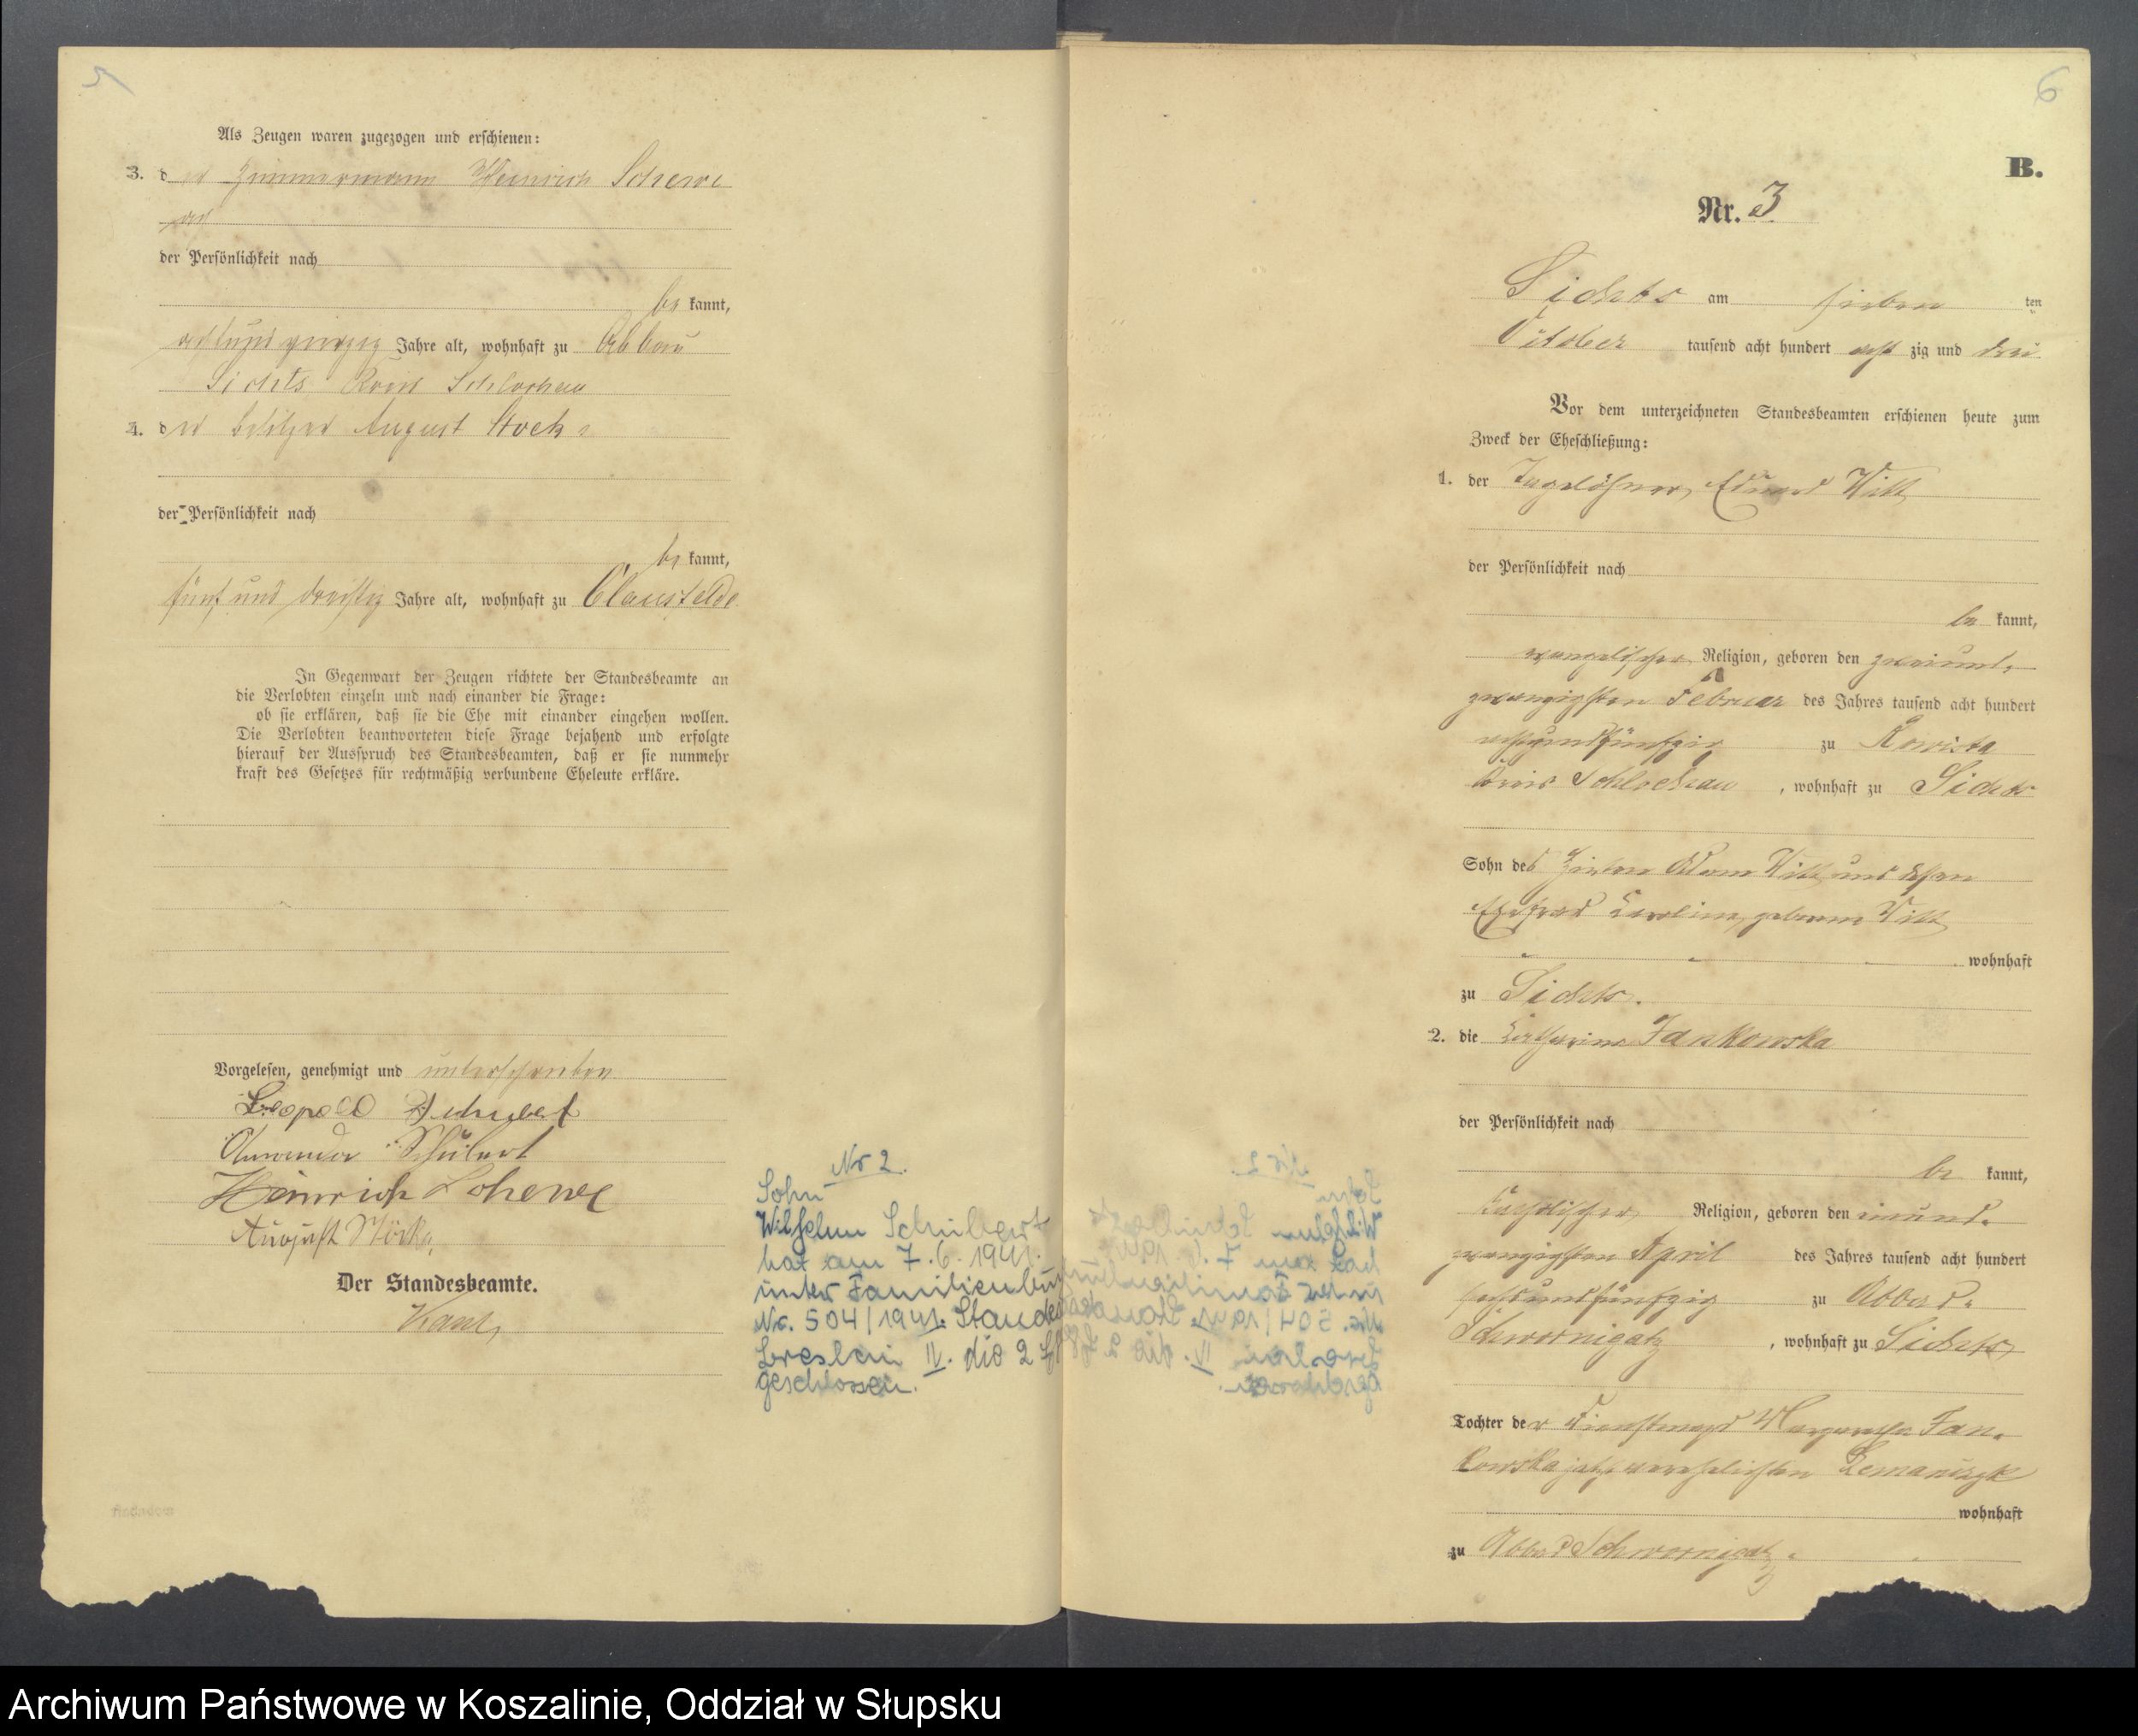 5
Als Zeugen waren zugezogen und erschienen:
3. der Zimmermann Heinrich Schewe
der Persönlichkeit nach
be kannt,
Jahre alt, wohnhaft zu Abbau
Sichts Kreis Schlochau
4. der Besitzer August Stoek
der Persönlichkeit nach
be kannt,
fünf und dreißig Jahre alt, wohnhaft zu Clausfelde
In Gegenwart der Zeugen richtete der Standesbeamte an
die Verlobten einzeln und nach einander die Frage:
ob sie erklären, daß sie die Ehe mit einander eingehen wollen.
Die Verlobten beantworteten diese Frage bejahend und erfolgte
hierauf der Ausspruch des Standesbeamten, daß er sie nunmehr
kraft des Gesetzes für rechtmäßig verbundene Eheleute erkläre.
Vorgelesen, genehmigt und unterschrieben
Leopold Schubert
Schubert
Heinrich Schewe
August
Der Standesbeamte.
Nr 2.
Sohn
Wilhelm Schubert
hat am 7.6.1941.
unter Familienbuch
Nr. 504/1941. Standes
Breslau IV. die 2
geschlossen.
6
B.
Nr. 3
Sichts am sieben ten
October tausend acht hundert acht zig und drei
Vor dem unterzeichneten Standesbeamten erschienen heute zum
Zweck der Eheschließung:
1. der Tagelöhner Eduard Witt
der Persönlichkeit nach
be kannt,
evangelischer Religion, geboren den zweiund-
zwanzigsten Februar des Jahres tausend acht hundert
achtundfünfzig zu
Kreis Schlochau, wohnhaft zu Sichts
Sohn des Adam Witt und dessen
Ehefrau Caroline, geborene Witt
wohnhaft
zu Sichts.
2. die Catharina Jankowska
der Persönlichkeit nach
be kannt,
katholischer Religion, geboren den einund-
zwanzigsten April des Jahres tausend acht hundert
sechsundfünfzig zu Abbau
Schwornigatz, wohnhaft zu Sichts
Tochter der Dienstmagd Margaretha Jan-
kowska jetzt verehelichten
wohnhaft
zu Abbau Schwornigatz.
Archiwum Państwowe w Koszalinie, Oddział w Słupsku